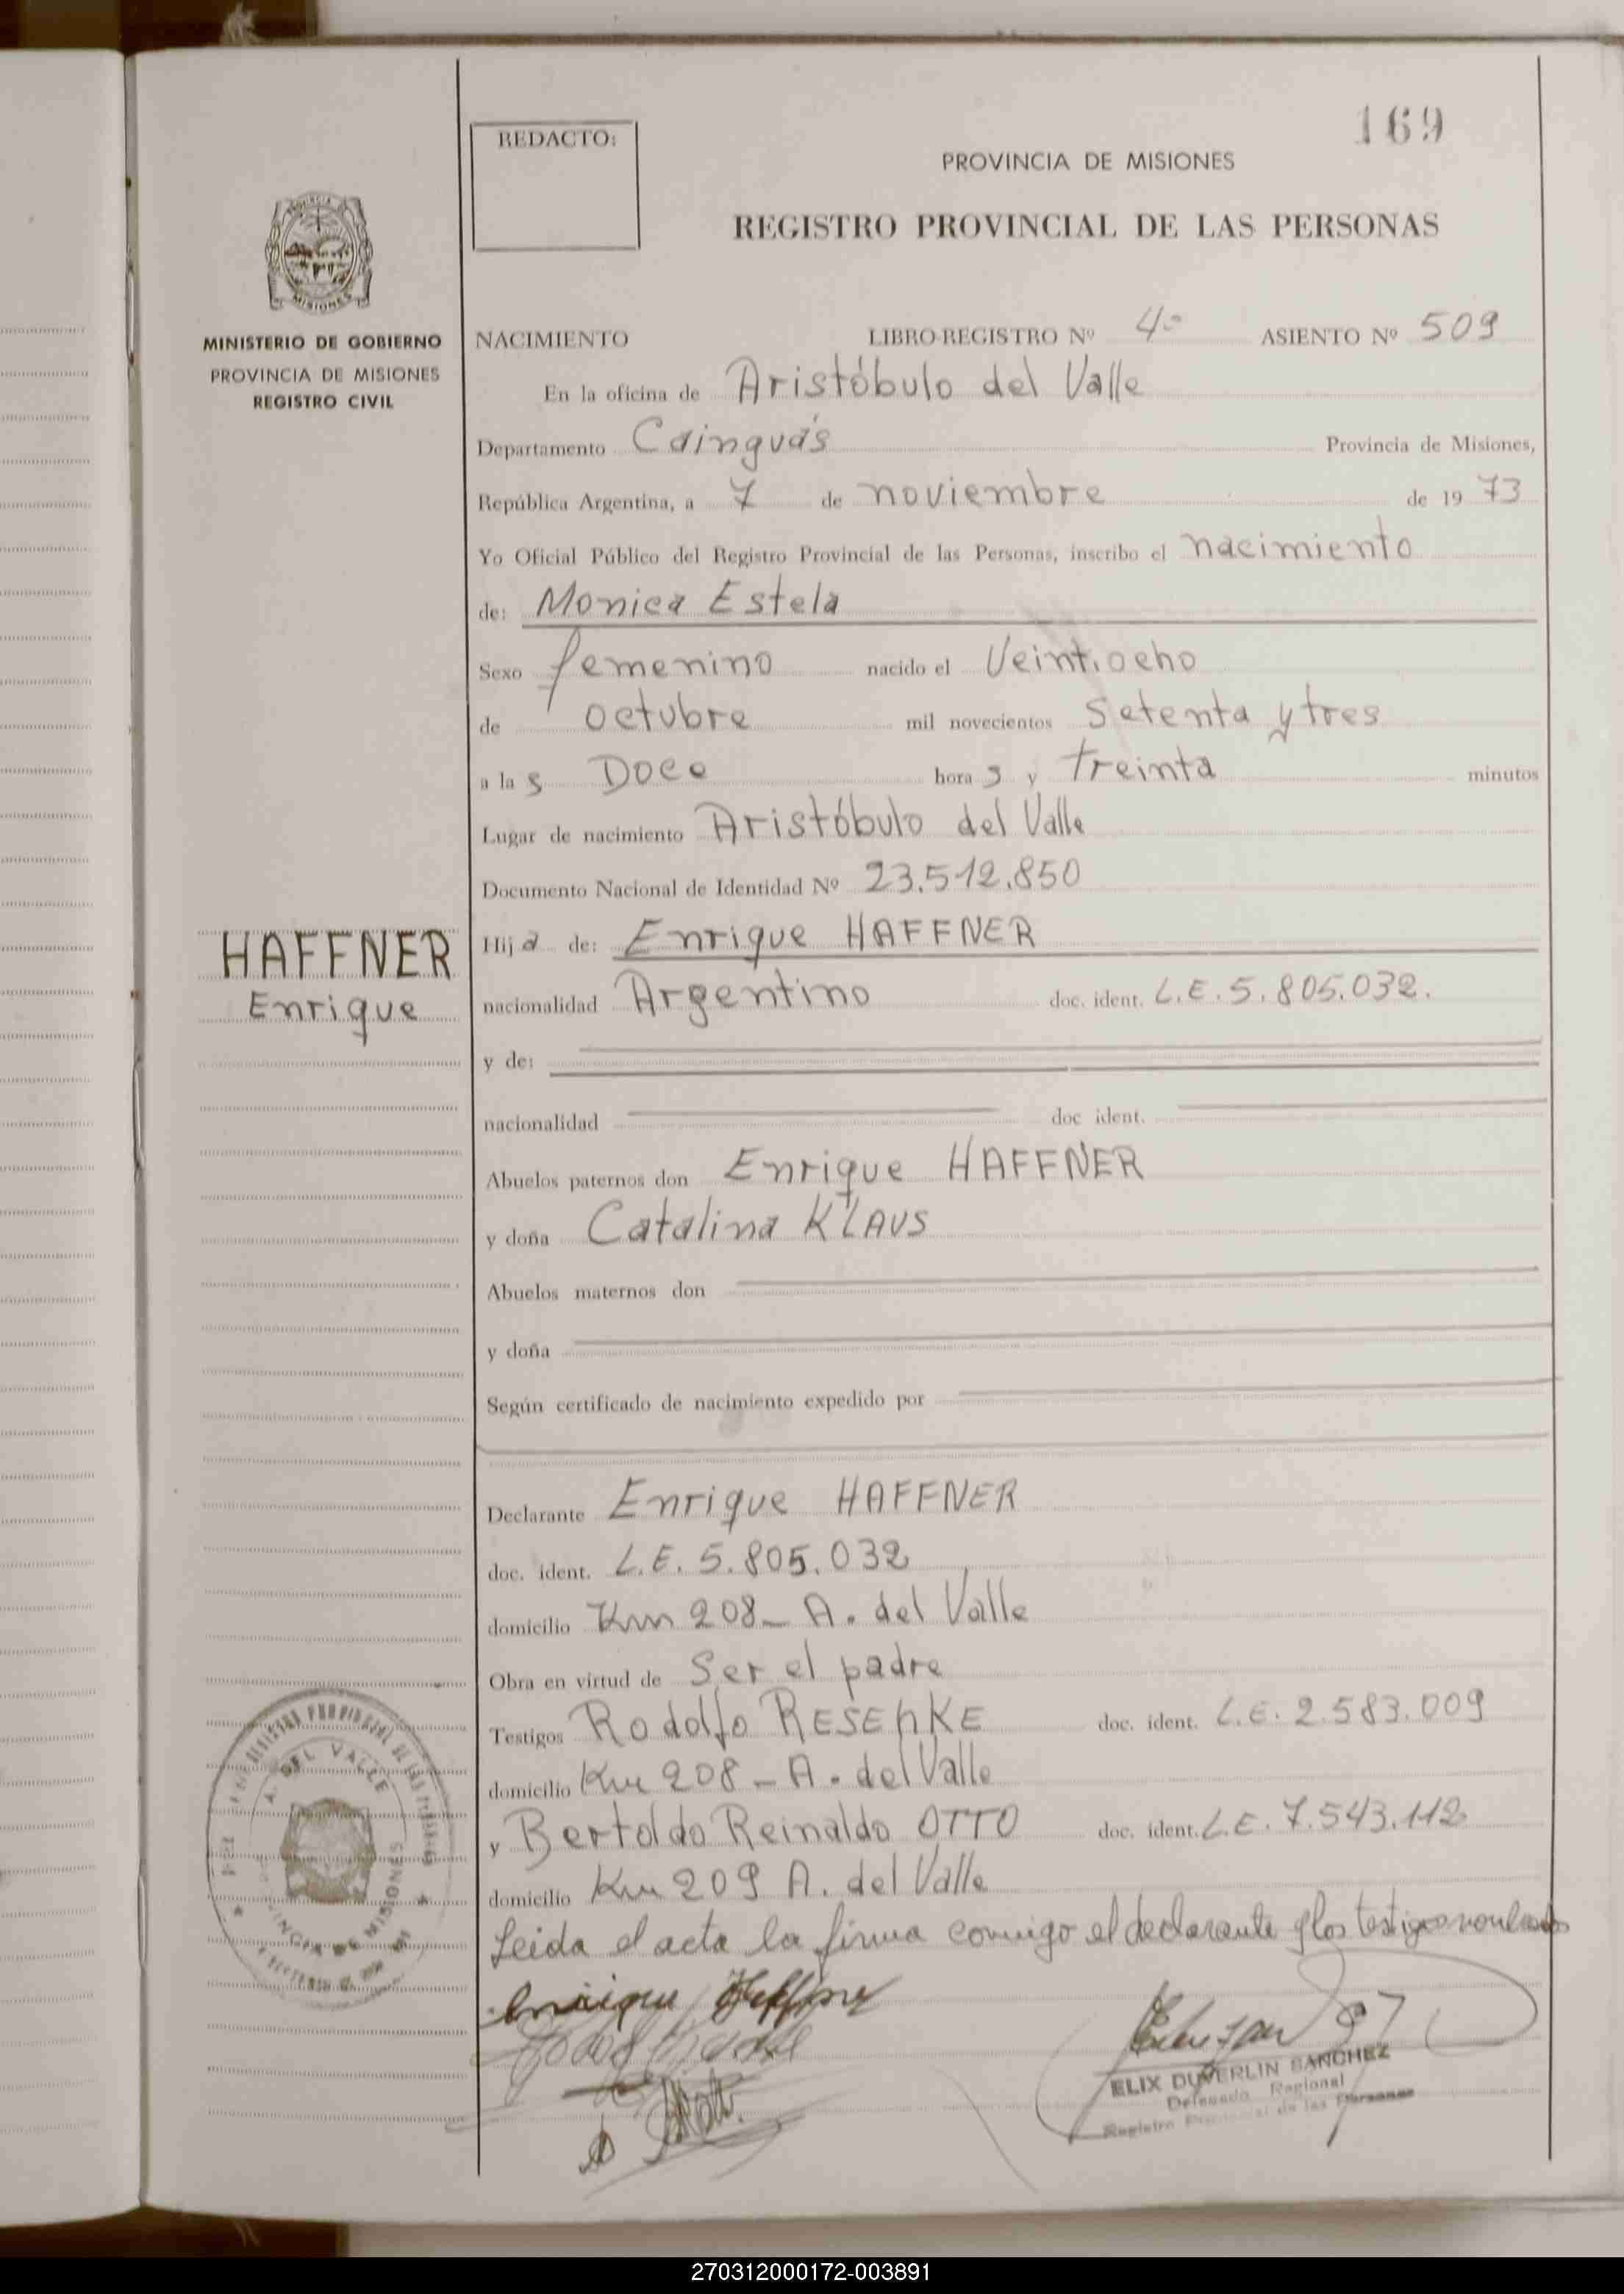 169
REDACTO:
PROVINCIA DE MISIONES
REGISTRO PROVINCIAL DE LAS PERSONAS
MISIONES
MINISTERIO DE GOBIERNO
PROVINCIA DE MISIONES
REGISTRO CIVIL
NACIMIENTO LIBRO-REGISTRO Nº 4º ASIENTO Nº 509
En la oficina de Aristóbulo del Valle
Departamento Cainguás Provincia de Misiones,
República Argentina, a 7 de noviembre de 1973
Yo Oficial Público del Registro Provincial de las Personas, inscribo el nacimiento
de: Monica Estela
Sexo femenino nacido el Veintiocho
de octubre mil novecientos setenta y tres
a las Doce horas y treinta minutos
Lugar de nacimiento Aristóbulo del Valle
Documento Nacional de Identidad Nº 23.512.850
HAFFNER
Enrique
Hija de: Enrique HAFFNER
nacionalidad Argentino doc. ident. L.E. 5.805.032.
y de:
nacionalidad doc ident.
Abuelos paternos don Enrique HAFFNER
y doña Catalina KLAUS
Abuelos maternos don
y doña
Según certificado de nacimiento expedido por
Declarante Enrique HAFFNER
doc. ident. L.E. 5.805.032
domicilio Km 208 - A. del Valle
Obra en virtud de Ser el padre
Testigos Rodolfo doc. ident. L.E. 2.583.009
domicilio Km 208 - A. del Valle
y Bertoldo Reinaldo OTTO doc. ident. L.E. 7.543.112
domicilio Km 209 A. del Valle
Leida el acta la firma conmigo el declarante y los testigos nombrados
Enrique Haffner
ELIX DUVERLIN SANCHEZ
Delegado Regional
Registro Provincial de las Personas
A. DEL VALLE
PROVINCIA DE MISIONES
270312000172-003891